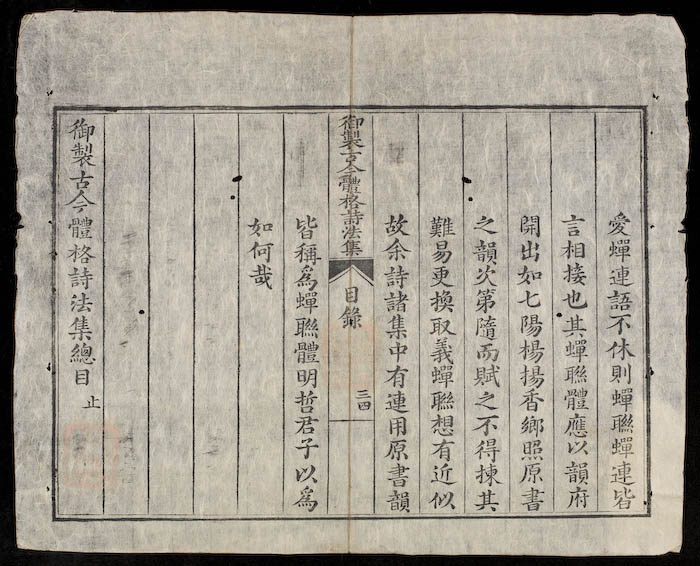 愛蟬連語不休則蟬聯蟬連皆
言相接也其蟬聯體應以韻府
開出如七陽楊揚香鄉照原書
之韻次第隨而賦之不得揀其
難易更換取義蟬聯想有近似
故余詩諸集中有連用原書韻
御製古今體格詩法集
目錄
三四
皆稱爲蟬聯體明哲君子以爲
如何哉
御製古今體格詩法集總目
止